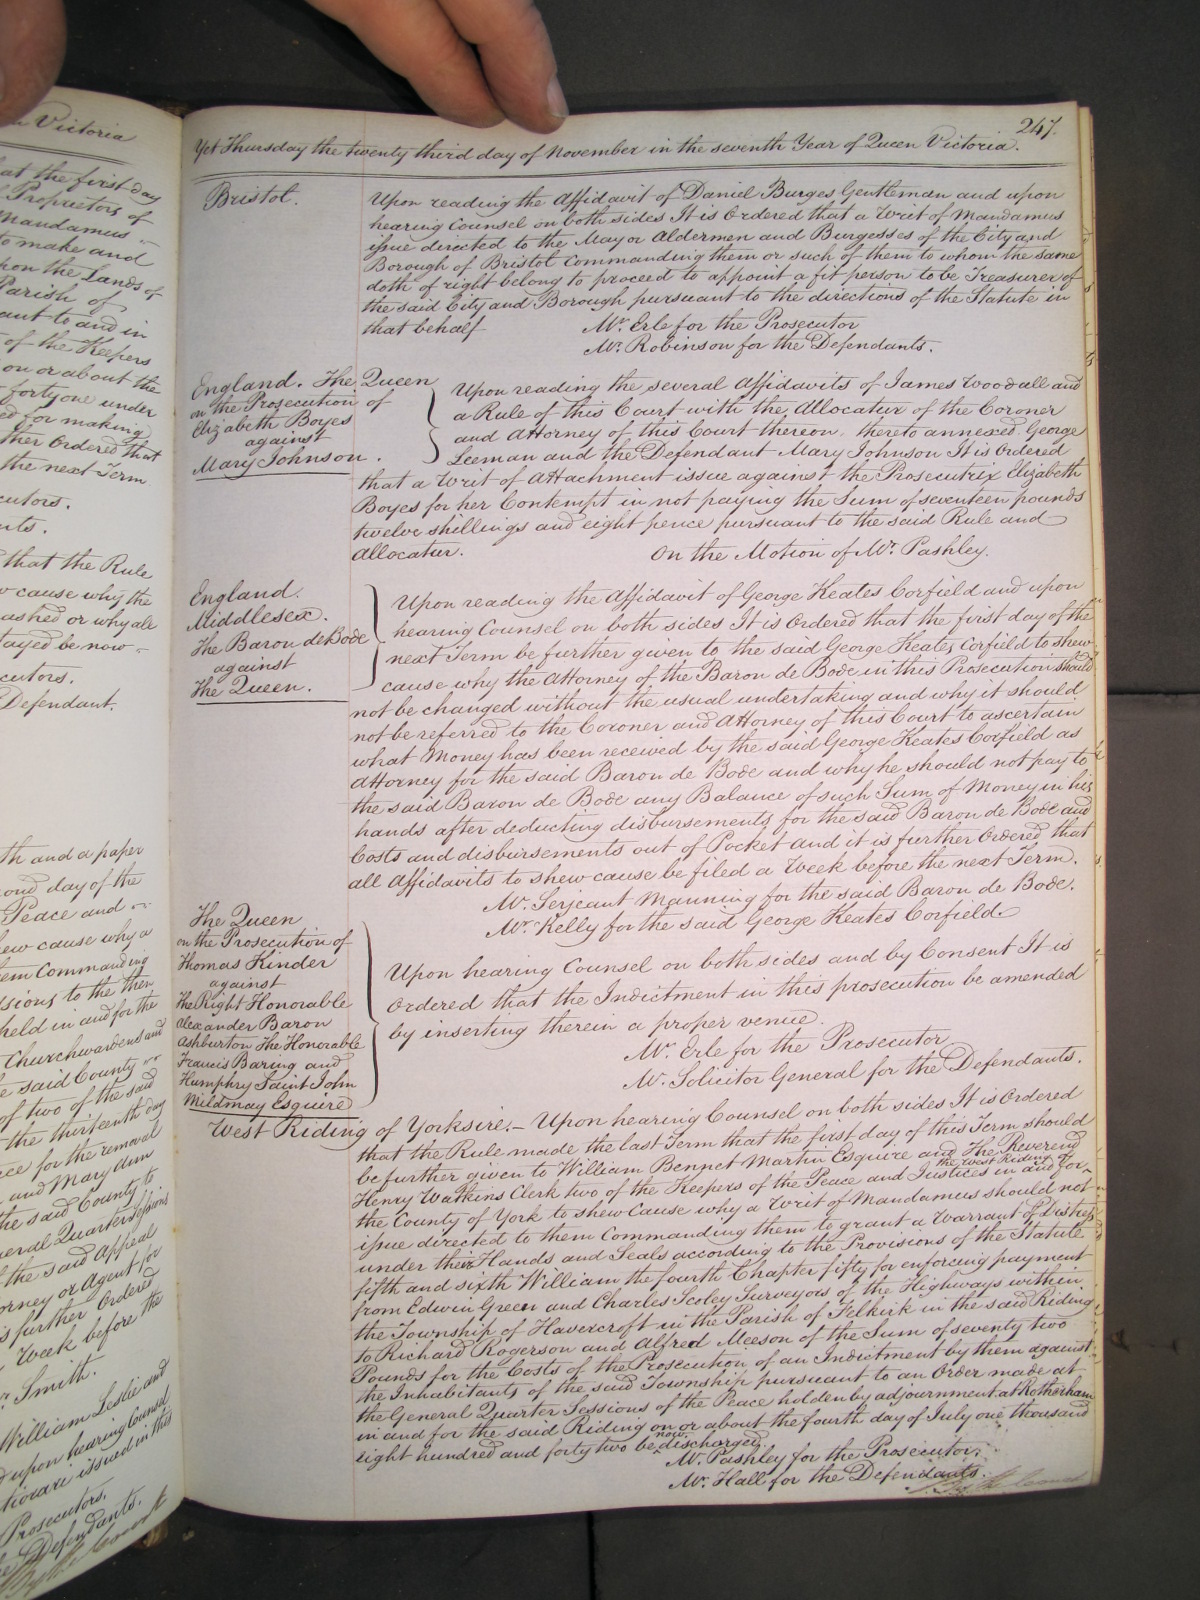 n Victoria
at the first day
Proprietors of
Mandamus
to make and
pon the Lands of
Parish of
ant to and in
of the Keepers
on or about the
forty one under
ed for making
ther Ordered that
the next Term
cutors.
nts.
that the Rule
w cause why the
ashed or why all
tayed be now
cutors.
Defendant.
th and a paper
ond day of the
Peace and
hew cause why a
em Commanding
ssions to the then
held in and for the
Churchwardens and
e said County
of two of the said
the thirteenth day
ce for the removal
and Mary Ann
the said County to
neral Quarter Sessions
the said Appeal
orney or Agent for
is further Ordered
Week before the
r. Smith.
William Leslie and
d upon hearing Counsel
tiorari issued in this
Prosecutors.
e Defendants.
By the Court
247.
Yet Thursday the twenty third day of November in the seventh Year of Queen Victoria.
Bristol.
Upon reading the Affidavit of Daniel Burges Gentleman and upon
hearing Counsel on both sides It is Ordered that a Writ of Mandamus
issue directed to the Mayor Aldermen and Burgesses of the City and
Borough of Bristol commanding them or such of them to whom the same
doth of right belong to proceed to appoint a fit person to be Treasurer of
the said City and Borough pursuant to the directions of the Statute in
that behalf
Mr. Erle for the Prosecutor
Mr. Robinson for the Defendants.
England. The Queen
on the Prosecution of
Elizabeth Boyes
against
Mary Johnson.
Upon reading the several Affidavits of James Woodall and
a Rule of this Court with the Allocatur of the Coroner
and Attorney of this Court thereon thereto annexed George
Leeman and the Defendant Mary Johnson It is Ordered
that a Writ of Attachment issue against the Prosecutrix Elizabeth
Boyes for her Contempt in not paying the Sum of seventeen pounds
twelve shillings and eight pence pursuant to the said Rule and
Allocatur.
On the Motion of Mr. Pashley.
England.
Middlesex.
The Baron de Bode
against
The Queen.
Upon reading the Affidavit of George Keates Corfield and upon
hearing Counsel on both sides It is Ordered that the first day of the
next Term be further given to the said George Keates Corfield to shew
cause why the Attorney of the Baron de Bode in this Prosecution should
not be changed without the usual undertaking and why it should
not be referred to the Coroner and Attorney of this Court to ascertain
what Money has been received by the said George Keates Corfield as
Attorney for the said Baron de Bode and why he should not pay to
the said Baron de Bode any Balance of such Sum of Money in his
hands after deducting disbursements for the said Baron de Bode and
Costs and disbursements out of Pocket and it is further Ordered that
all Affidavits to shew cause be filed a Week before the next Term.
Mr. Serjeant Manning for the said Baron de Bode.
Mr. Kelly for the said George Keates Corfield.
The Queen
on the Prosecution of
Thomas Kinder
against
The Right Honorable
Alexander Baron
Ashburton The Honorable
Francis Baring and
Humphry Saint John
Mildmay Esquire
Upon hearing Counsel on both sides and by Consent It is
Ordered that the Indictment in this prosecution be amended
by inserting therein a proper venue.
Mr. Erle for the Prosecutor
Mr. Solicitor General for the Defendants.
West Riding of Yorksire.- Upon hearing Counsel on both sides It is Ordered
that the Rule made the last Term that the first day of this Term should
be further given to William Bennet Martin Esquire and The Reverend
the West Riding of
Henry Watkins Clerk two of the Keepers of the Peace and Justices in and for
the County of York to shew cause why a Writ of Mandamus should not
issue directed to them Commanding them to grant a Warrant of Distress
under their Hands and Seals according to the Provisions of the Statute
fifth and sixth William the fourth Chapter fifty for enforcing payment
from Edwin Green and Charles Scoley Surveyors of the Highways within
the Township of Havercroft in the Parish of Felkirk in the said Riding
to Richard Rogerson and Alfred Meeson of the Sum of seventy two
Pounds for the Costs of the Prosecution of an Indictment by them against
the Inhabitants of the said Township pursuant to an Order made at
the General Quarter Sessions of the Peace holden by adjournment at Rotherham
in and for the said Riding on or about the fourth day of July one thousand
now
eight hundred and forty two be discharged.
Mr. Pashley for the Prosecutor.
Mr. Hall for the Defendants.
By the Court